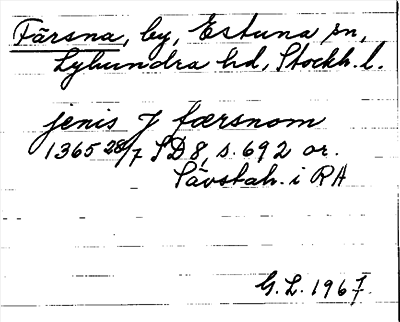 Färsna, by, Estuna sn,
Lyhundra hd, Stockh. l.
jenis J færsnom
1365 28/7 SD 8, s. 692 or.
Sävstah. i RA
G. L. 1967.